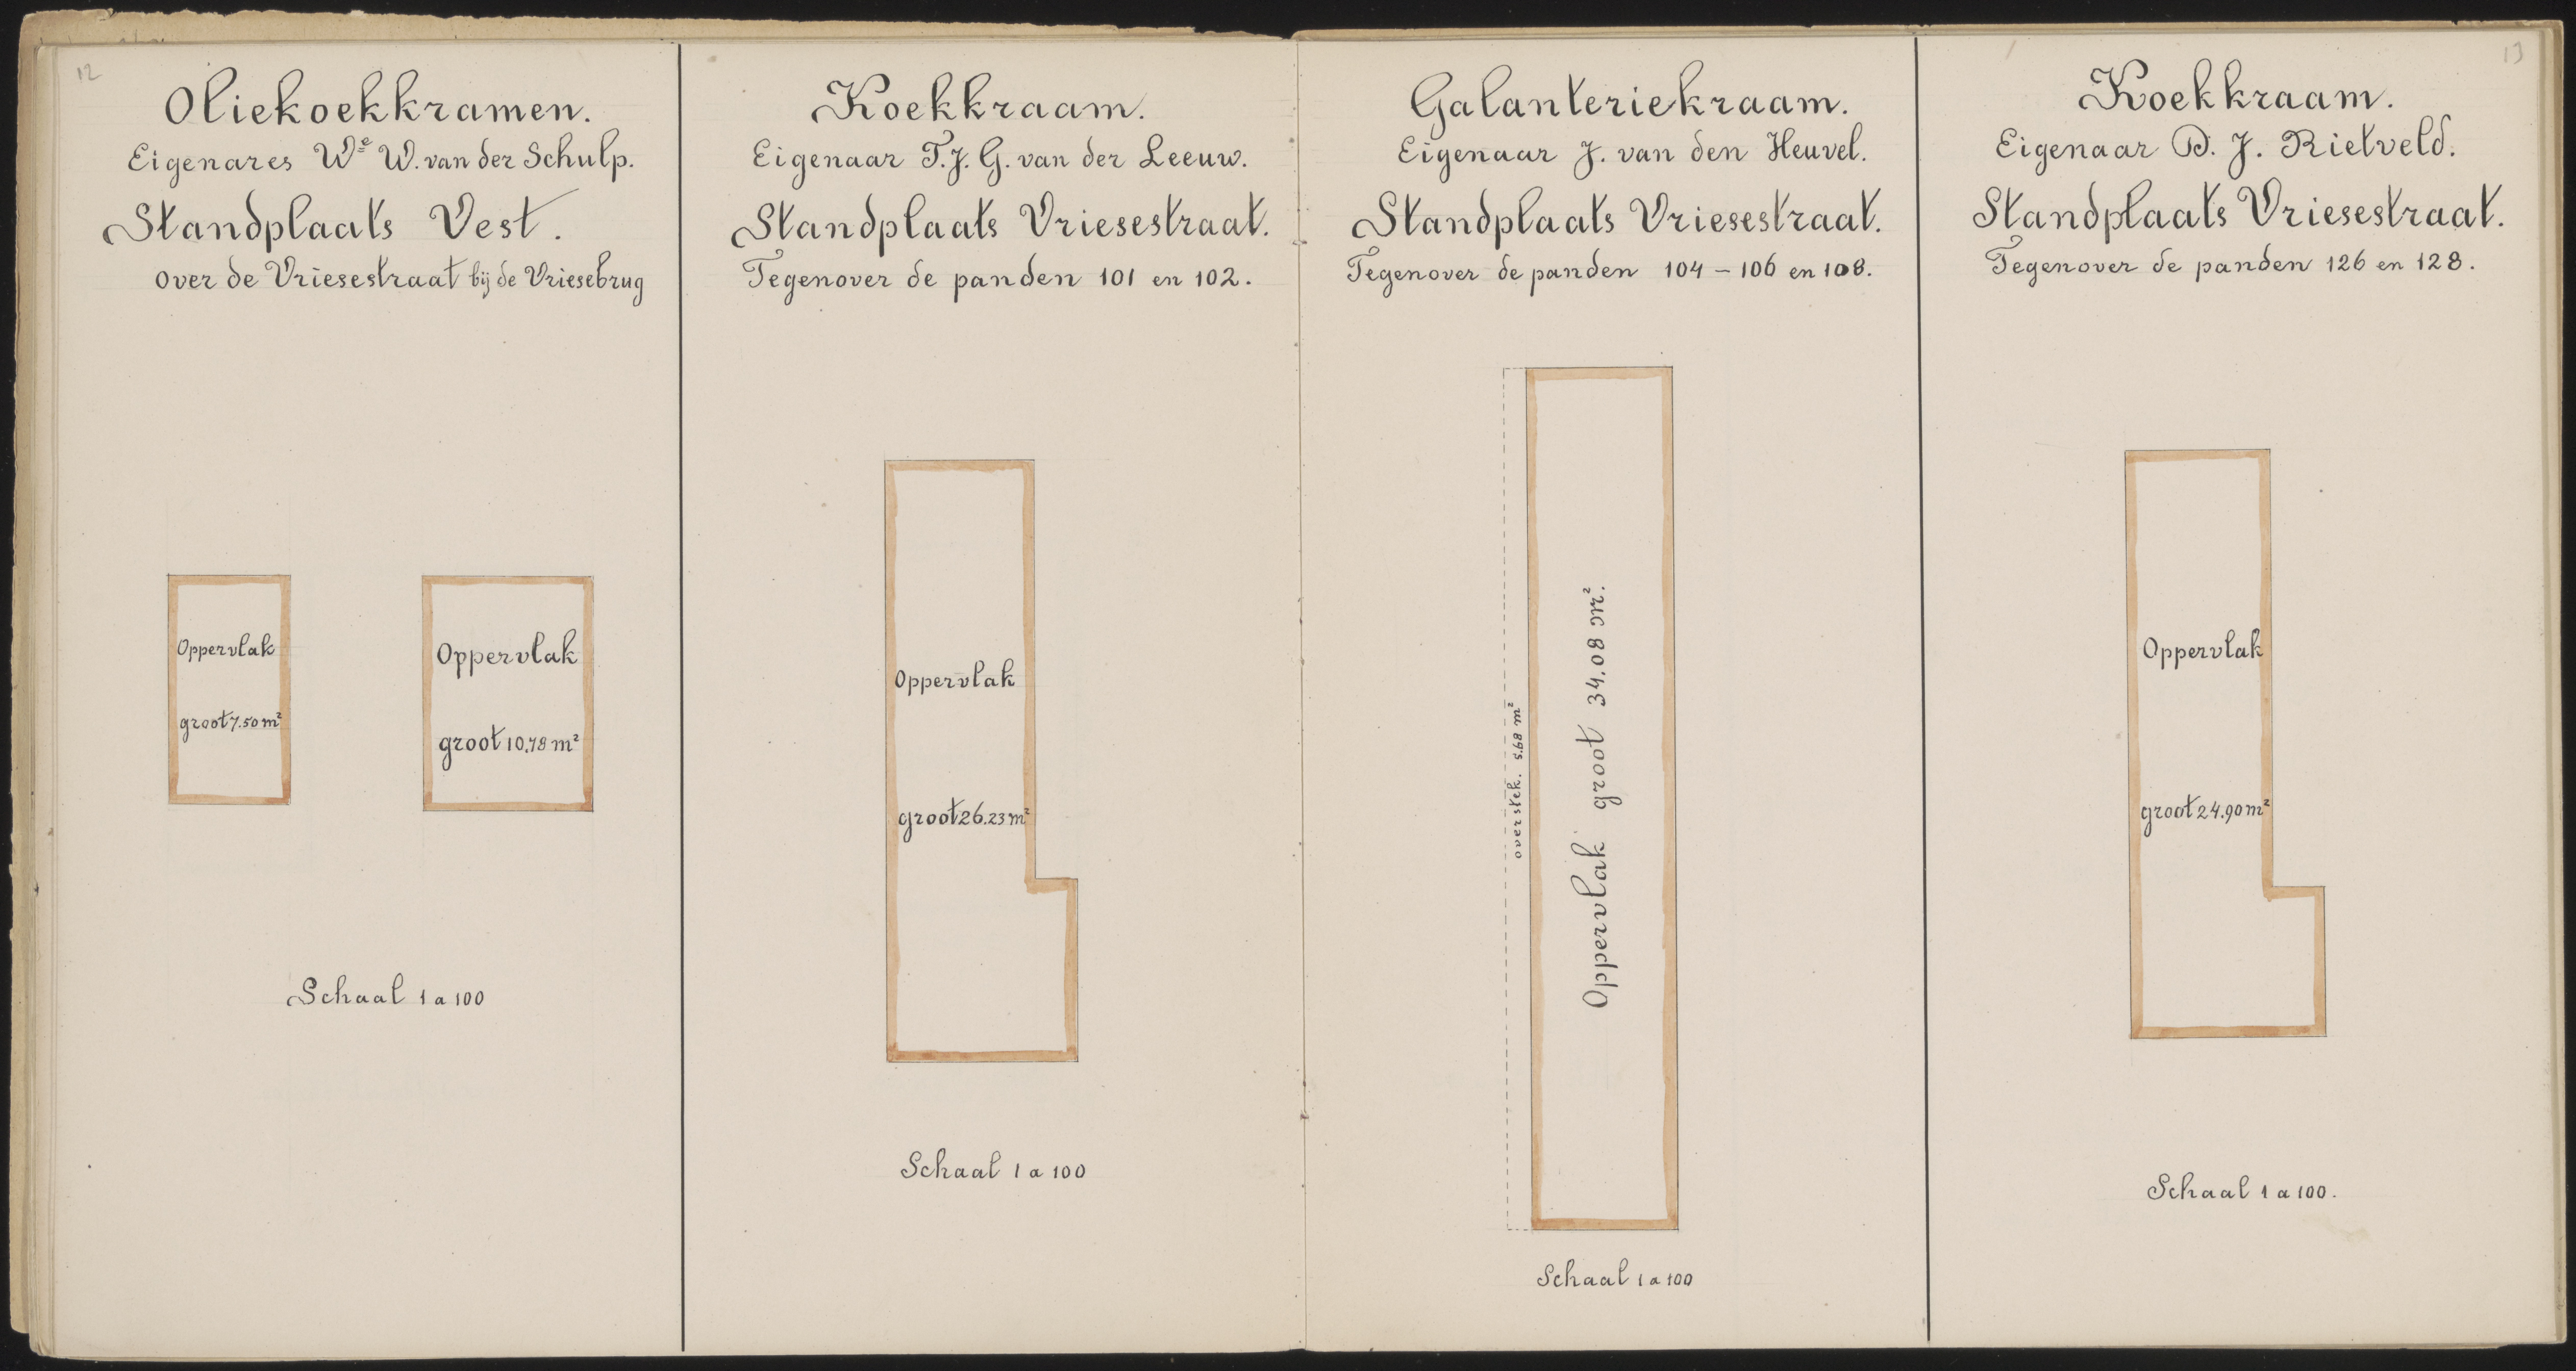 12
Oliekoekkramen.
Eigenares We W. van der Schulp.
Standplaats Vest.
over de Vriesestraat bij de Vriesebrug
Oppervlak
groot 7.50 m²
Oppervlak
groot 10.78 m²
Schaal 1 a 100
Koekkraam.
Eigenaar T. J. G. van der Leeuw.
Standplaats Vriesestraat.
Tegenover de panden 101 en 102.
Oppervlak
groot 26.23 m²
Schaal 1 a 100
Galanteriekraam.
Eigenaar J. van den Heuvel.
Standplaats Vriesestraat.
Tegenover de panden 104 – 106 en 108.
overstek. 5.68 m²
Oppervlak groot 34.08 m².
Schaal 1 a 100
13
Koekkraam.
Eigenaar D. J. Rietveld.
Standplaats Vriesestraat.
Tegenover de panden 126 en 128.
Oppervlak
groot 24.90 m²
Schaal 1 a 100.